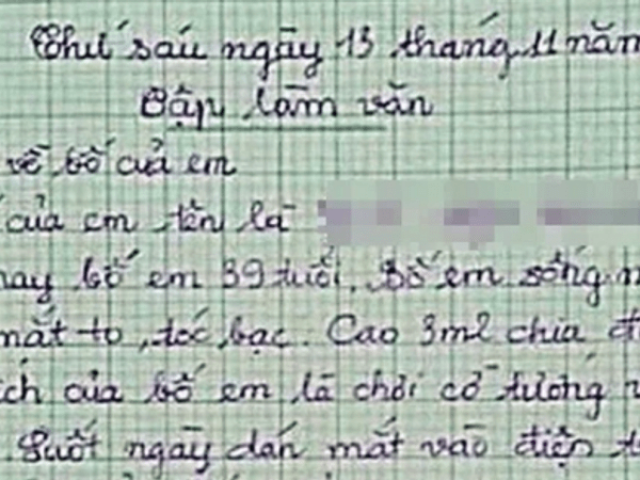 Thứ sáu ngày 13 tháng 11 năm
Tập làm văn
về bố của em
của em tên là
nay bố em 39 tuổi. Bố em sống m
mắt to, tóc bạc. Cao 3m2 chia đ
ích của bố em là chơi cờ tướng v
Suốt ngày dán mắt vào điện t